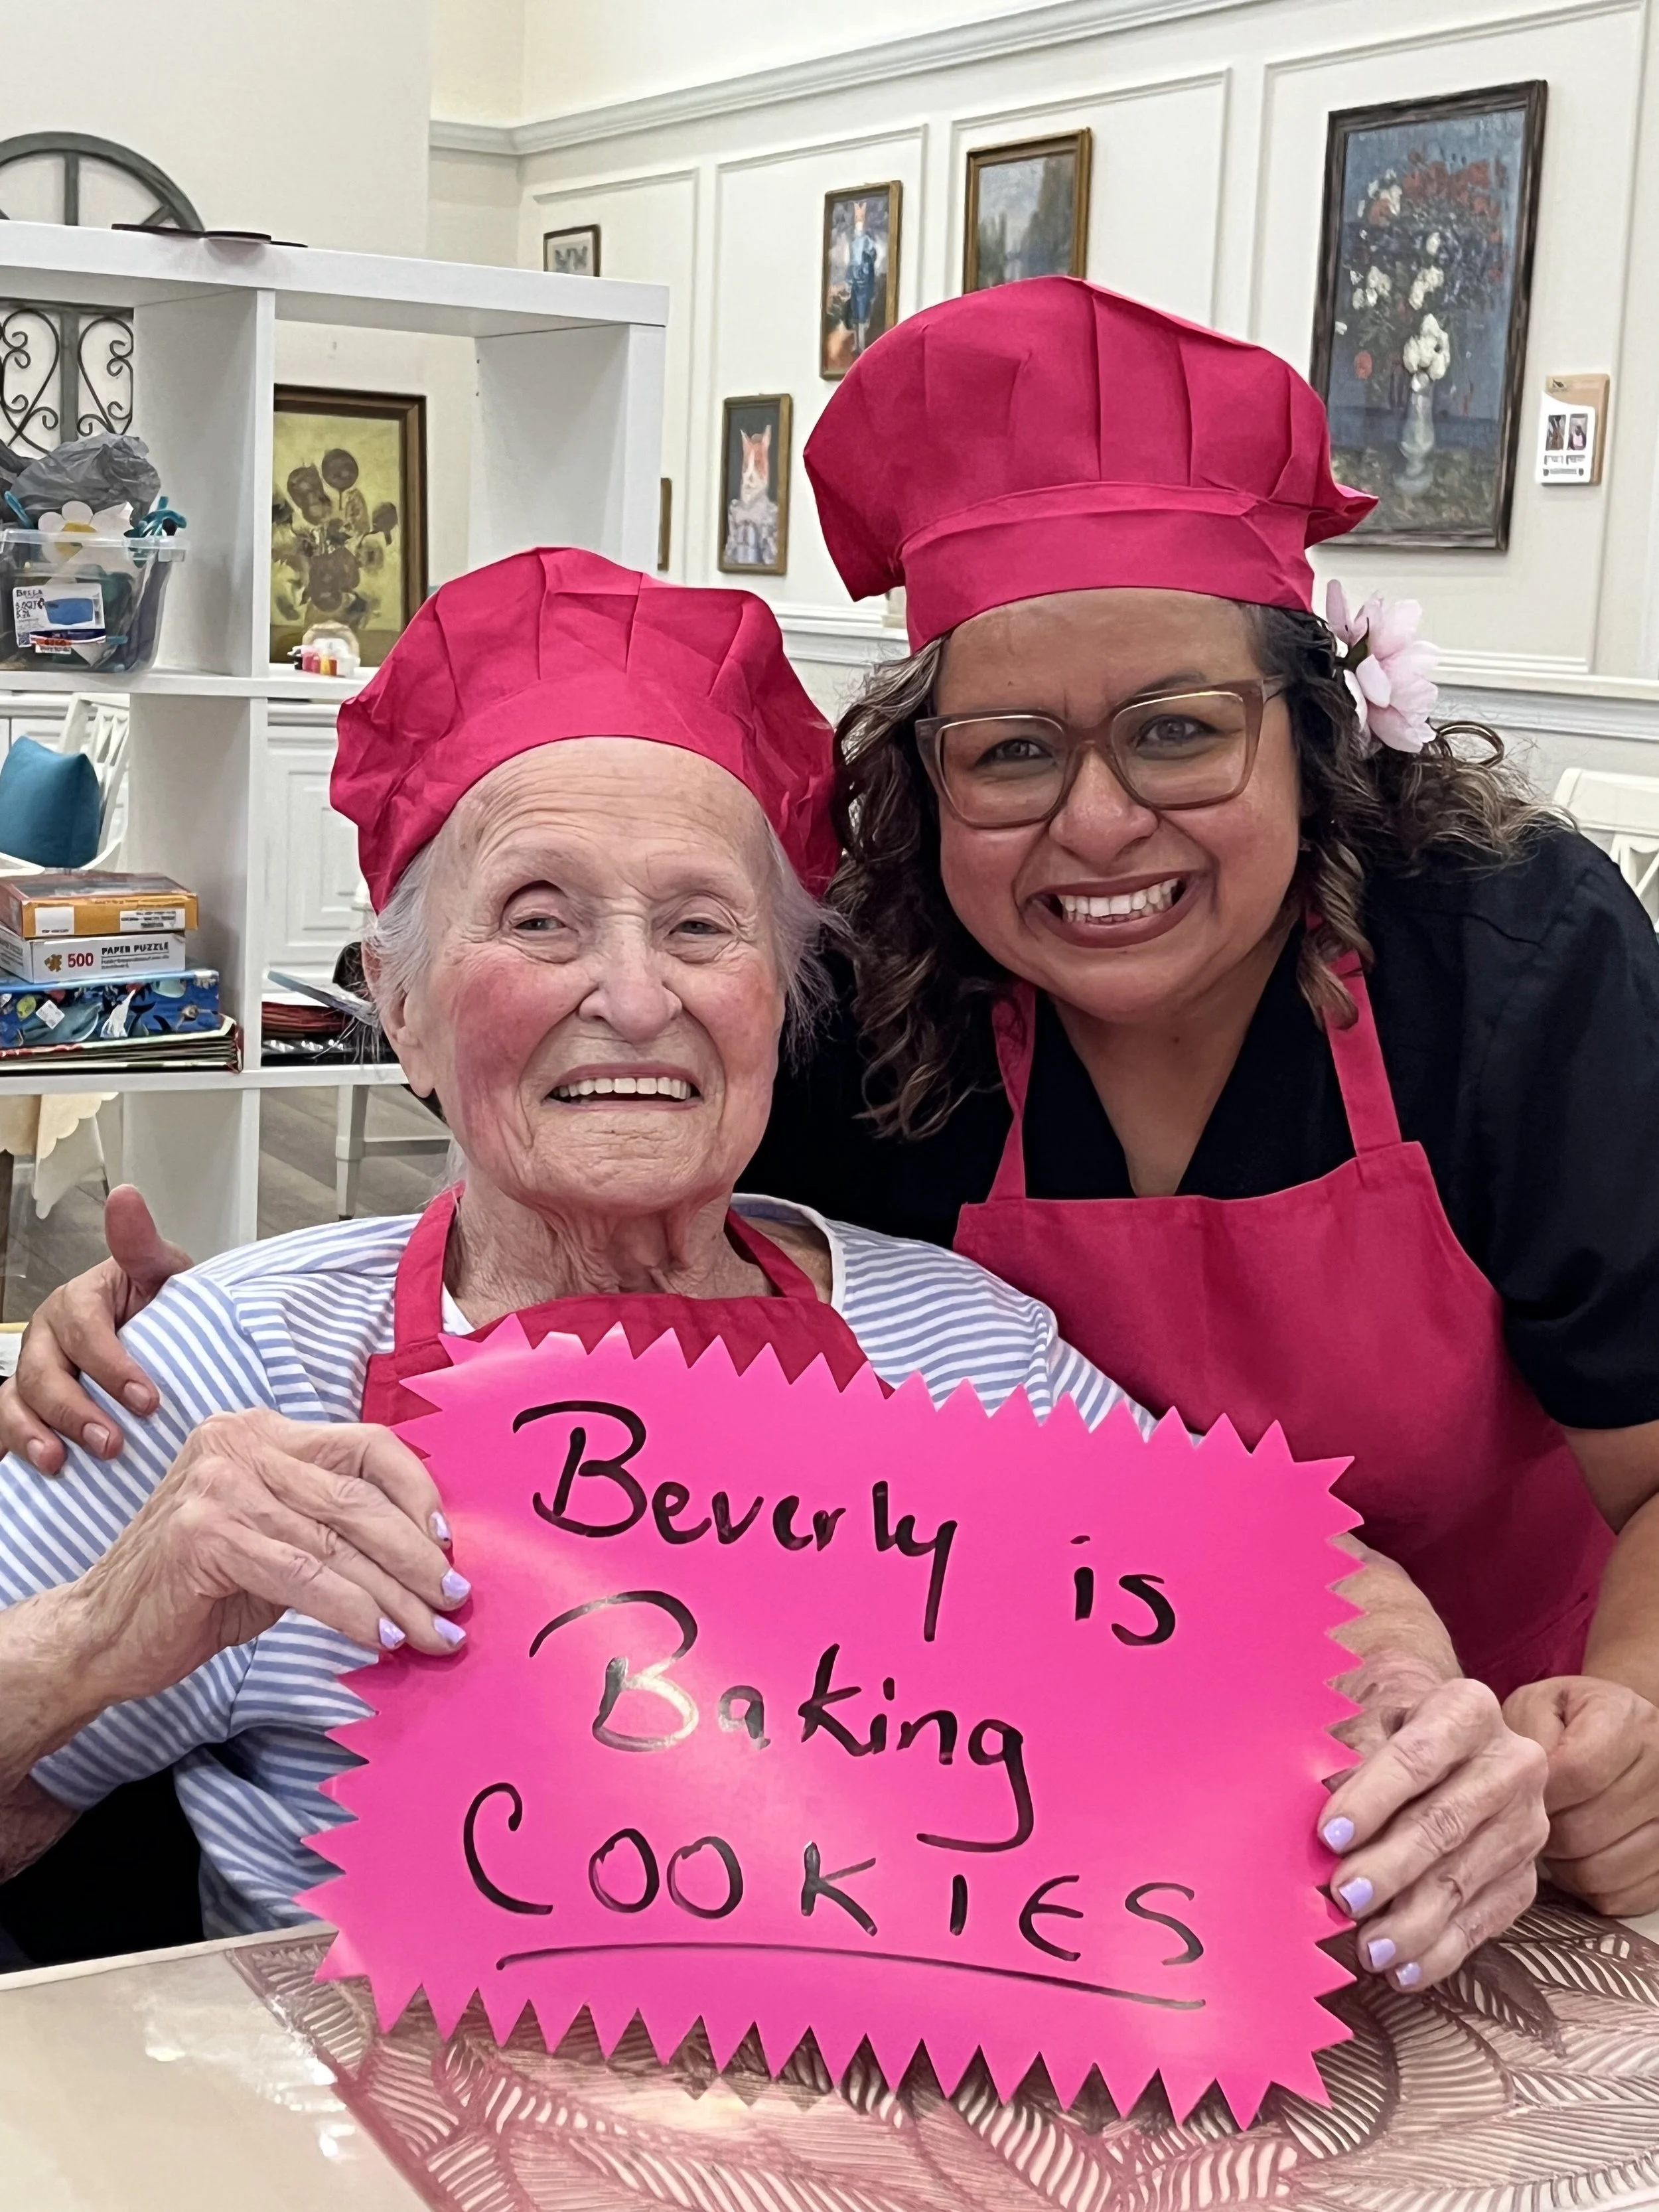 BELLA
500
PAPER PUZZLE
Beverly is
Baking
COOKIES